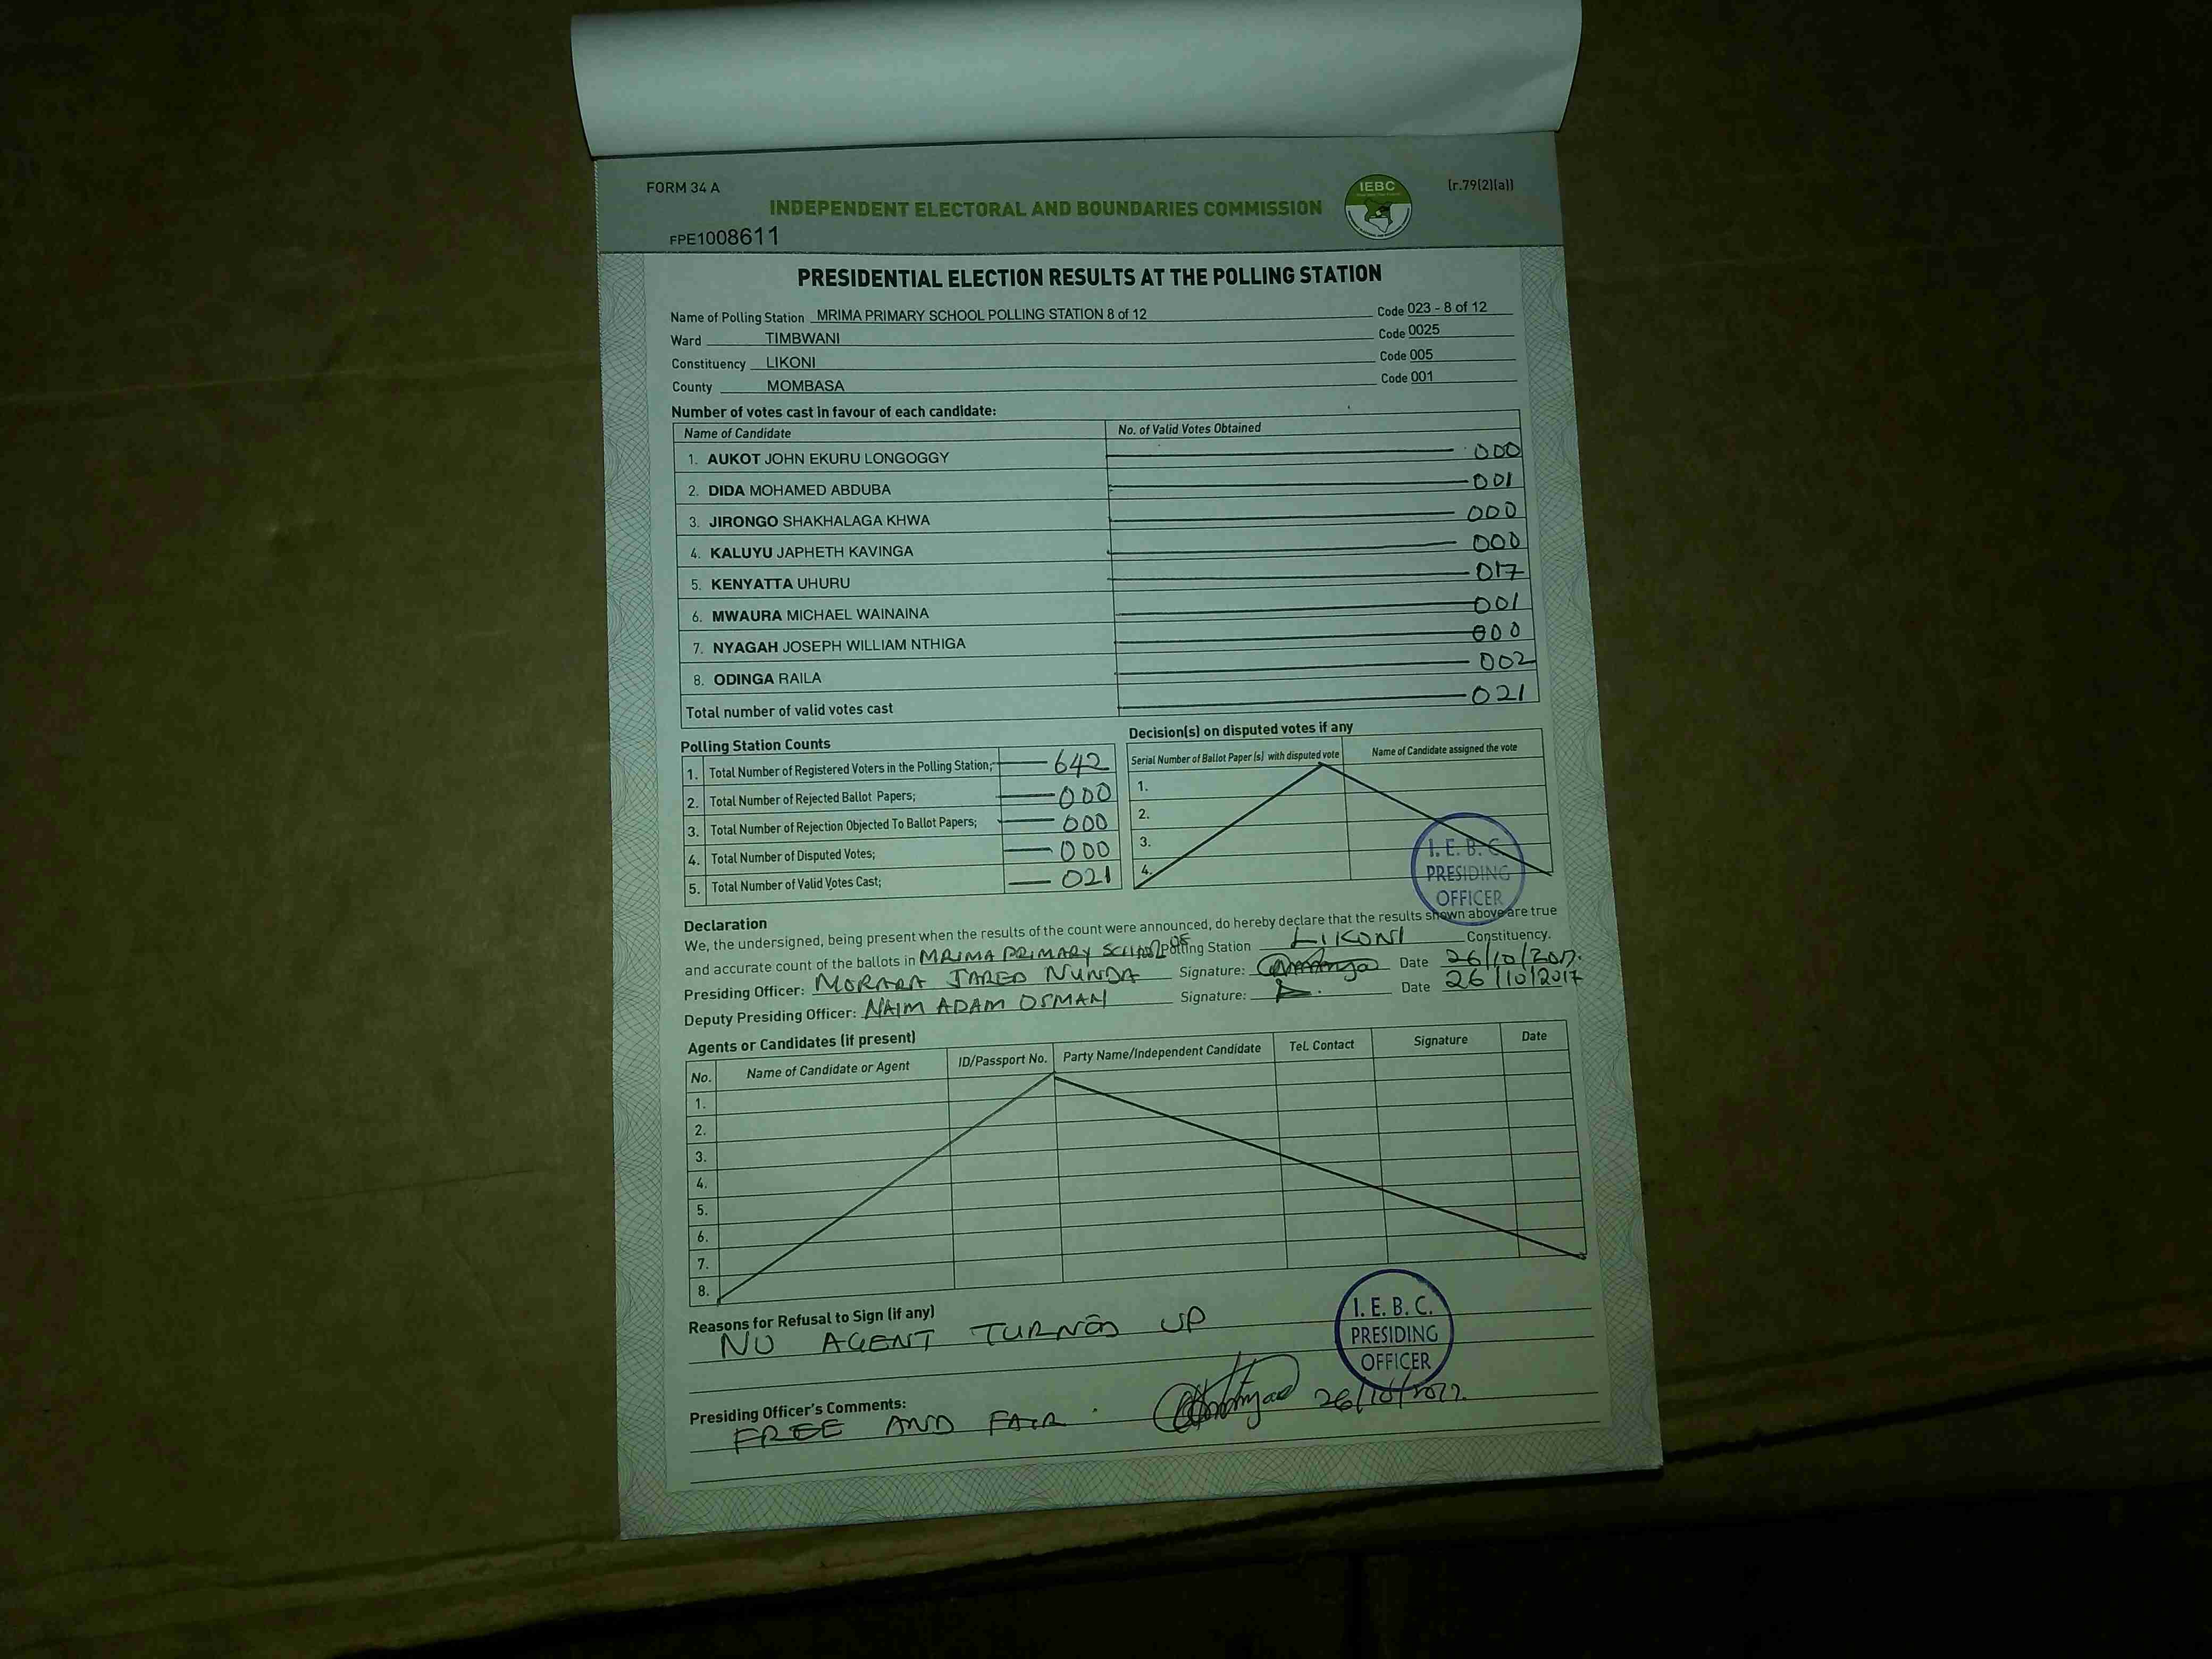 FORM 34 A
(r.79(2)(a))
INDEPENDENT ELECTORAL AND BOUNDARIES COMMISSION
IEBC
FPE1008611
PRESIDENTIAL ELECTION RESULTS AT THE POLLING STATION
Name of Polling Station MRIMA PRIMARY SCHOOL POLLING STATION 8 of 12 Code 023 - 8 of 12
Ward TIMBWANI Code 0025
Constituency LIKONI Code 005
County MOMBASA Code 001
Number of votes cast in favour of each candidate:
Name of Candidate No. of Valid Votes Obtained
1. AUKOT JOHN EKURU LONGOGGY 000
2. DIDA MOHAMED ABDUBA 001
3. JIRONGO SHAKHALAGA KHWA 000
4. KALUYU JAPHETH KAVINGA 000
5. KENYATTA UHURU 017
6. MWAURA MICHAEL WAINAINA 001
7. NYAGAH JOSEPH WILLIAM NTHIGA 000
8. ODINGA RAILA 002
Total number of valid votes cast 021
Polling Station Counts
1. Total Number of Registered Voters in the Polling Station; 642
2. Total Number of Rejected Ballot Papers; 000
3. Total Number of Rejection Objected To Ballot Papers; 000
4. Total Number of Disputed Votes; 000
5. Total Number of Valid Votes Cast; 021
Decision(s) on disputed votes if any
Serial Number of Ballot Paper (s) with disputed vote Name of Candidate assigned the vote
1.
2.
3.
4.
I. E. B. C.
PRESIDING
OFFICER
Declaration
We, the undersigned, being present when the results of the count were announced, do hereby declare that the results shown above are true
and accurate count of the ballots in MRIMA PRIMARY SCHOOL Polling Station LIKONI Constituency.
Presiding Officer: MORARA JARED NUNDA Signature: Date 26/10/2017.
Deputy Presiding Officer: NAIM ADAM OSMAN Signature: Date 26/10/2017
Agents or Candidates (if present)
No. Name of Candidate or Agent ID/Passport No. Party Name/Independent Candidate Tel. Contact Signature Date
1.
2.
3.
4.
5.
6.
7.
8.
Reasons for Refusal to Sign (if any)
NO AGENT TURNED UP
I. E. B. C.
PRESIDING
OFFICER
Presiding Officer's Comments:
FREE AND FAIR. 26/10/2017.